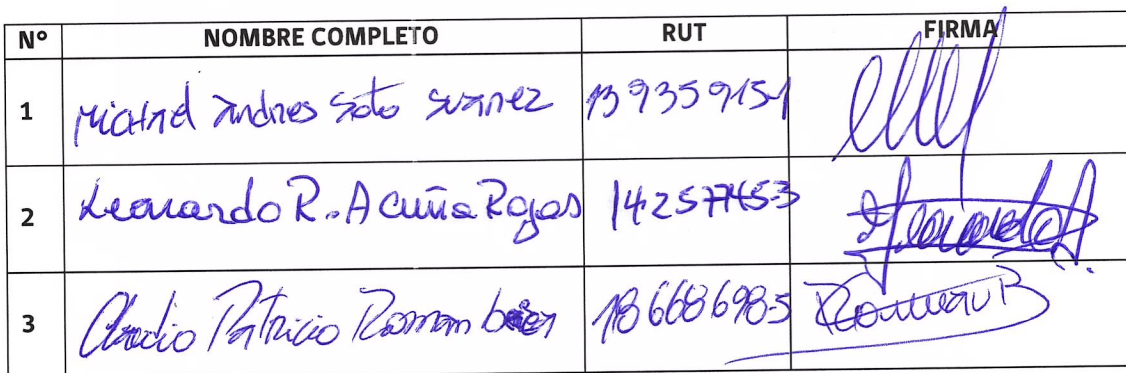 N° NOMBRE COMPLETO RUT FIRMA
1 Michael Andres Soto Suarez 13935915-1
2 Leonardo R. Acuña Rojas 14257745-3
3 Claudio Patricio Roman 18668698-5 RomanB